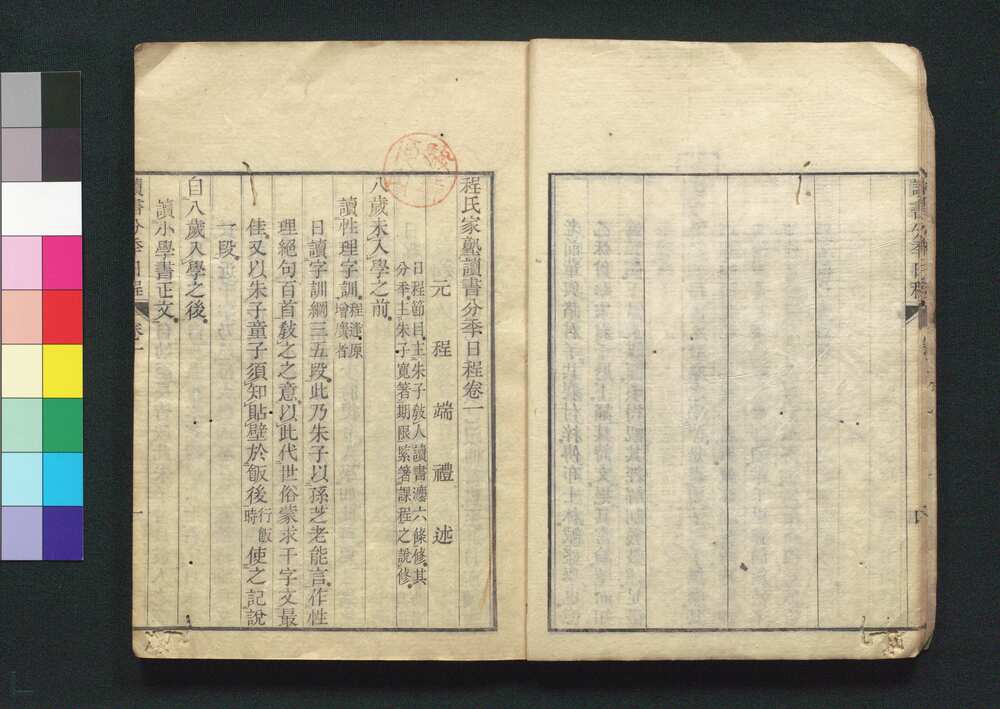 程氏家塾讀書分季日程卷一
元 程 端 禮 述
日程節目主朱子敎人讀書灋六條修其
分季主朱子寬著期限緊著課程之說修
八歲未入學之前
讀性理字訓程逢原增廣者
日讀字訓綱三五段此乃朱子以孫芝老能言作性
理絕句百首敎之之意以此代世俗蒙求千字文最
佳又以朱子童子須知貼壁於飯後時行飯使之記說
一段
自八歲入學之後
讀小學書正文
讀書分季日程 卷一 一